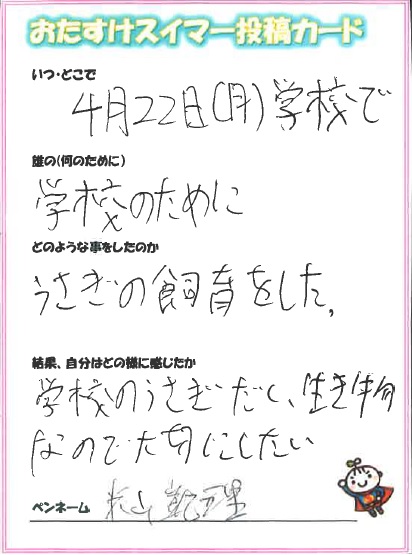 おたすけスイマー投稿カード
いつ・どこで
4月22日(月)学校で
誰の(何のために)
学校のために
どのような事をしたのか
うさぎの飼育をした。
結果、自分はどの様に感じたか
学校のうさぎだし、生き物
なので大切にしたい
ペンネーム